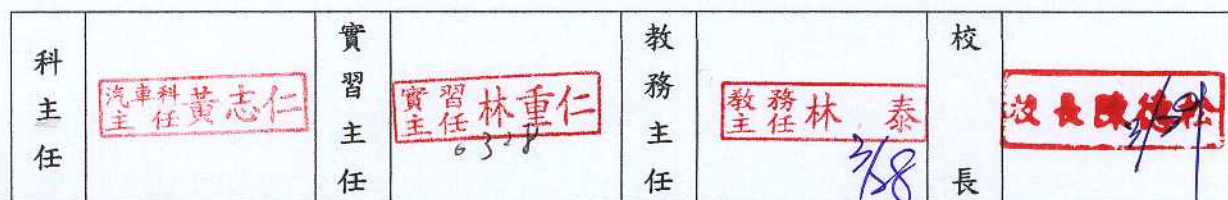 科主任
汽車科主任 黃志仁
實習主任
實習主任 林重仁
0328
教務主任
教務主任 林 泰
3/28
校長
校長陳德松